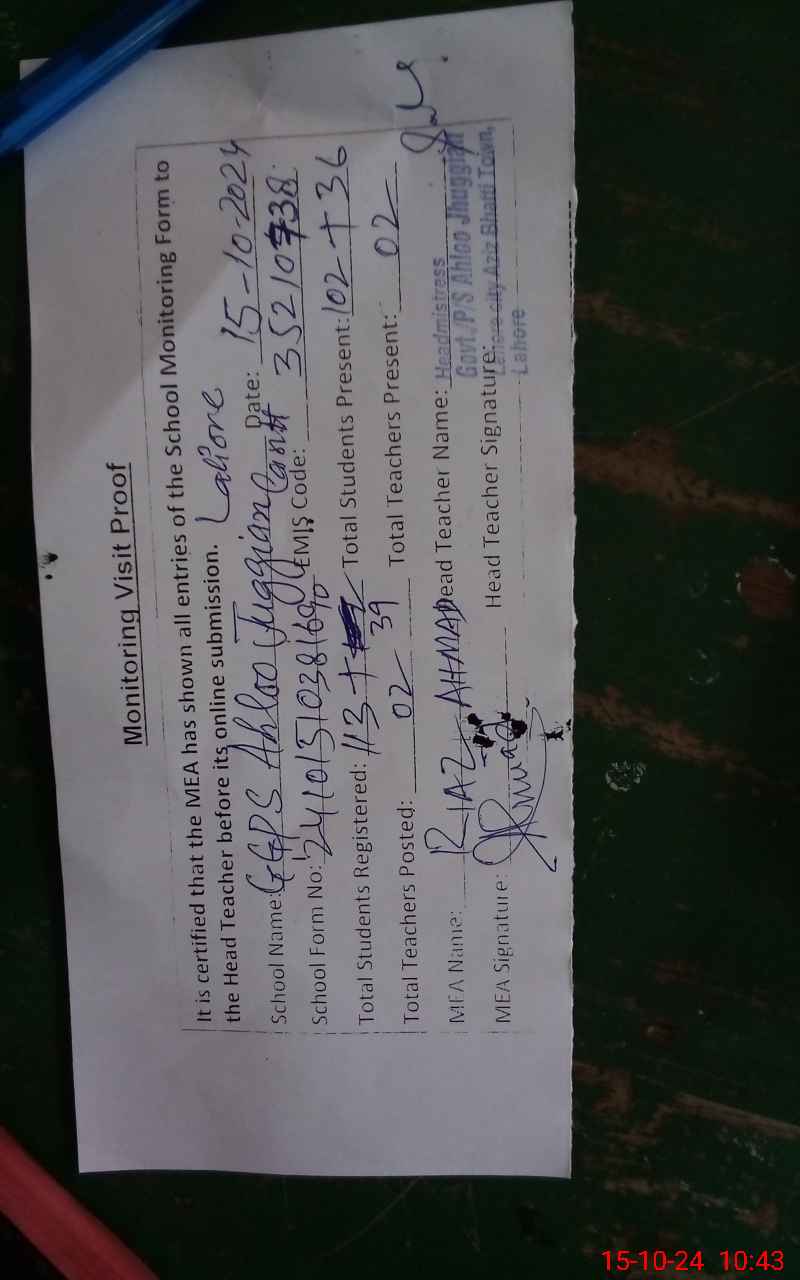 Monitoring Visit Proof
It is certified that the MEA has shown all entries of the School Monitoring Form to
the Head Teacher before its online submission. Lahore
School Name: GGPS Ahloo Juggian Cantt Date: 15-10-2024
School Form No: EMIS Code: 35210738
Total Students Registered: 113 + 39 Total Students Present: 102 + 36
Total Teachers Posted: 02 Total Teachers Present: 02
MEA Name: RIAZ AHMAD Head Teacher Name: Headmistress
Govt./P/S Ahloo Jhuggian
MEA Signature: Head Teacher Signature: Lahore city Aziz Bhatti Town,
Lahore
15-10-24 10:43